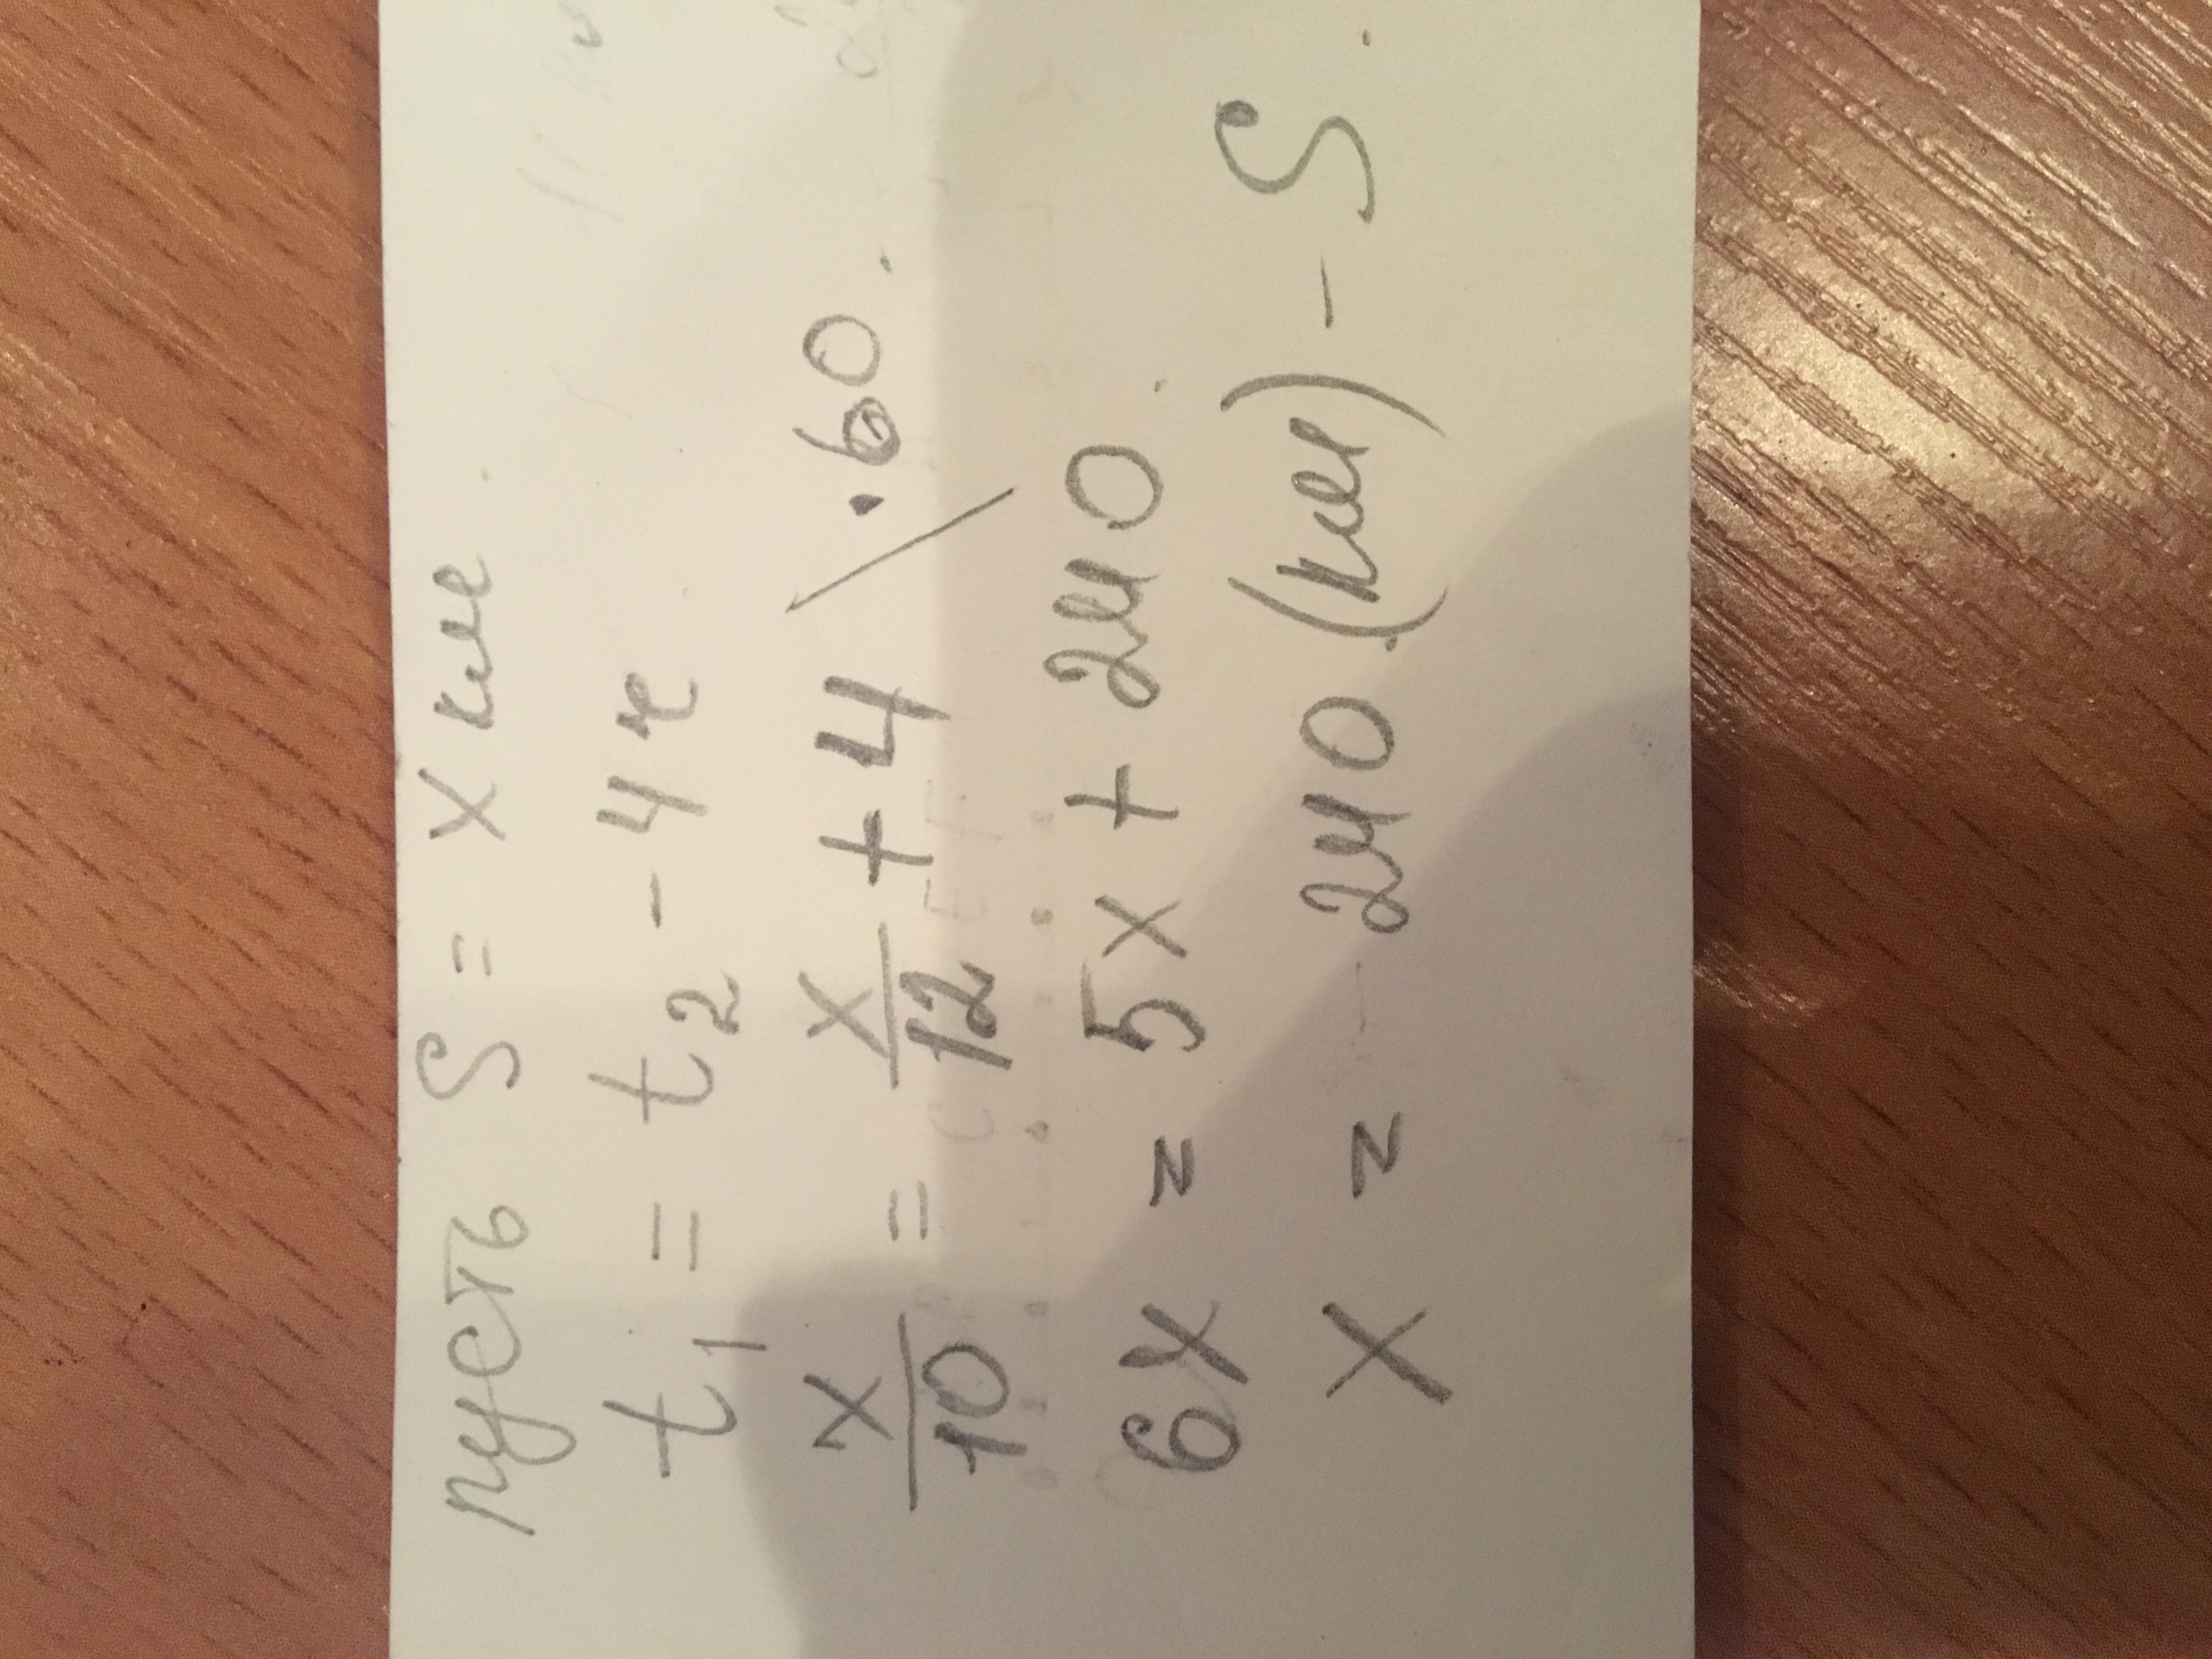 пусть S = x км
t₁ = t₂ - 4 ч
x/10 = x/12 + 4 | · 60.
6x = 5x + 240
x = 240 (км) - S.